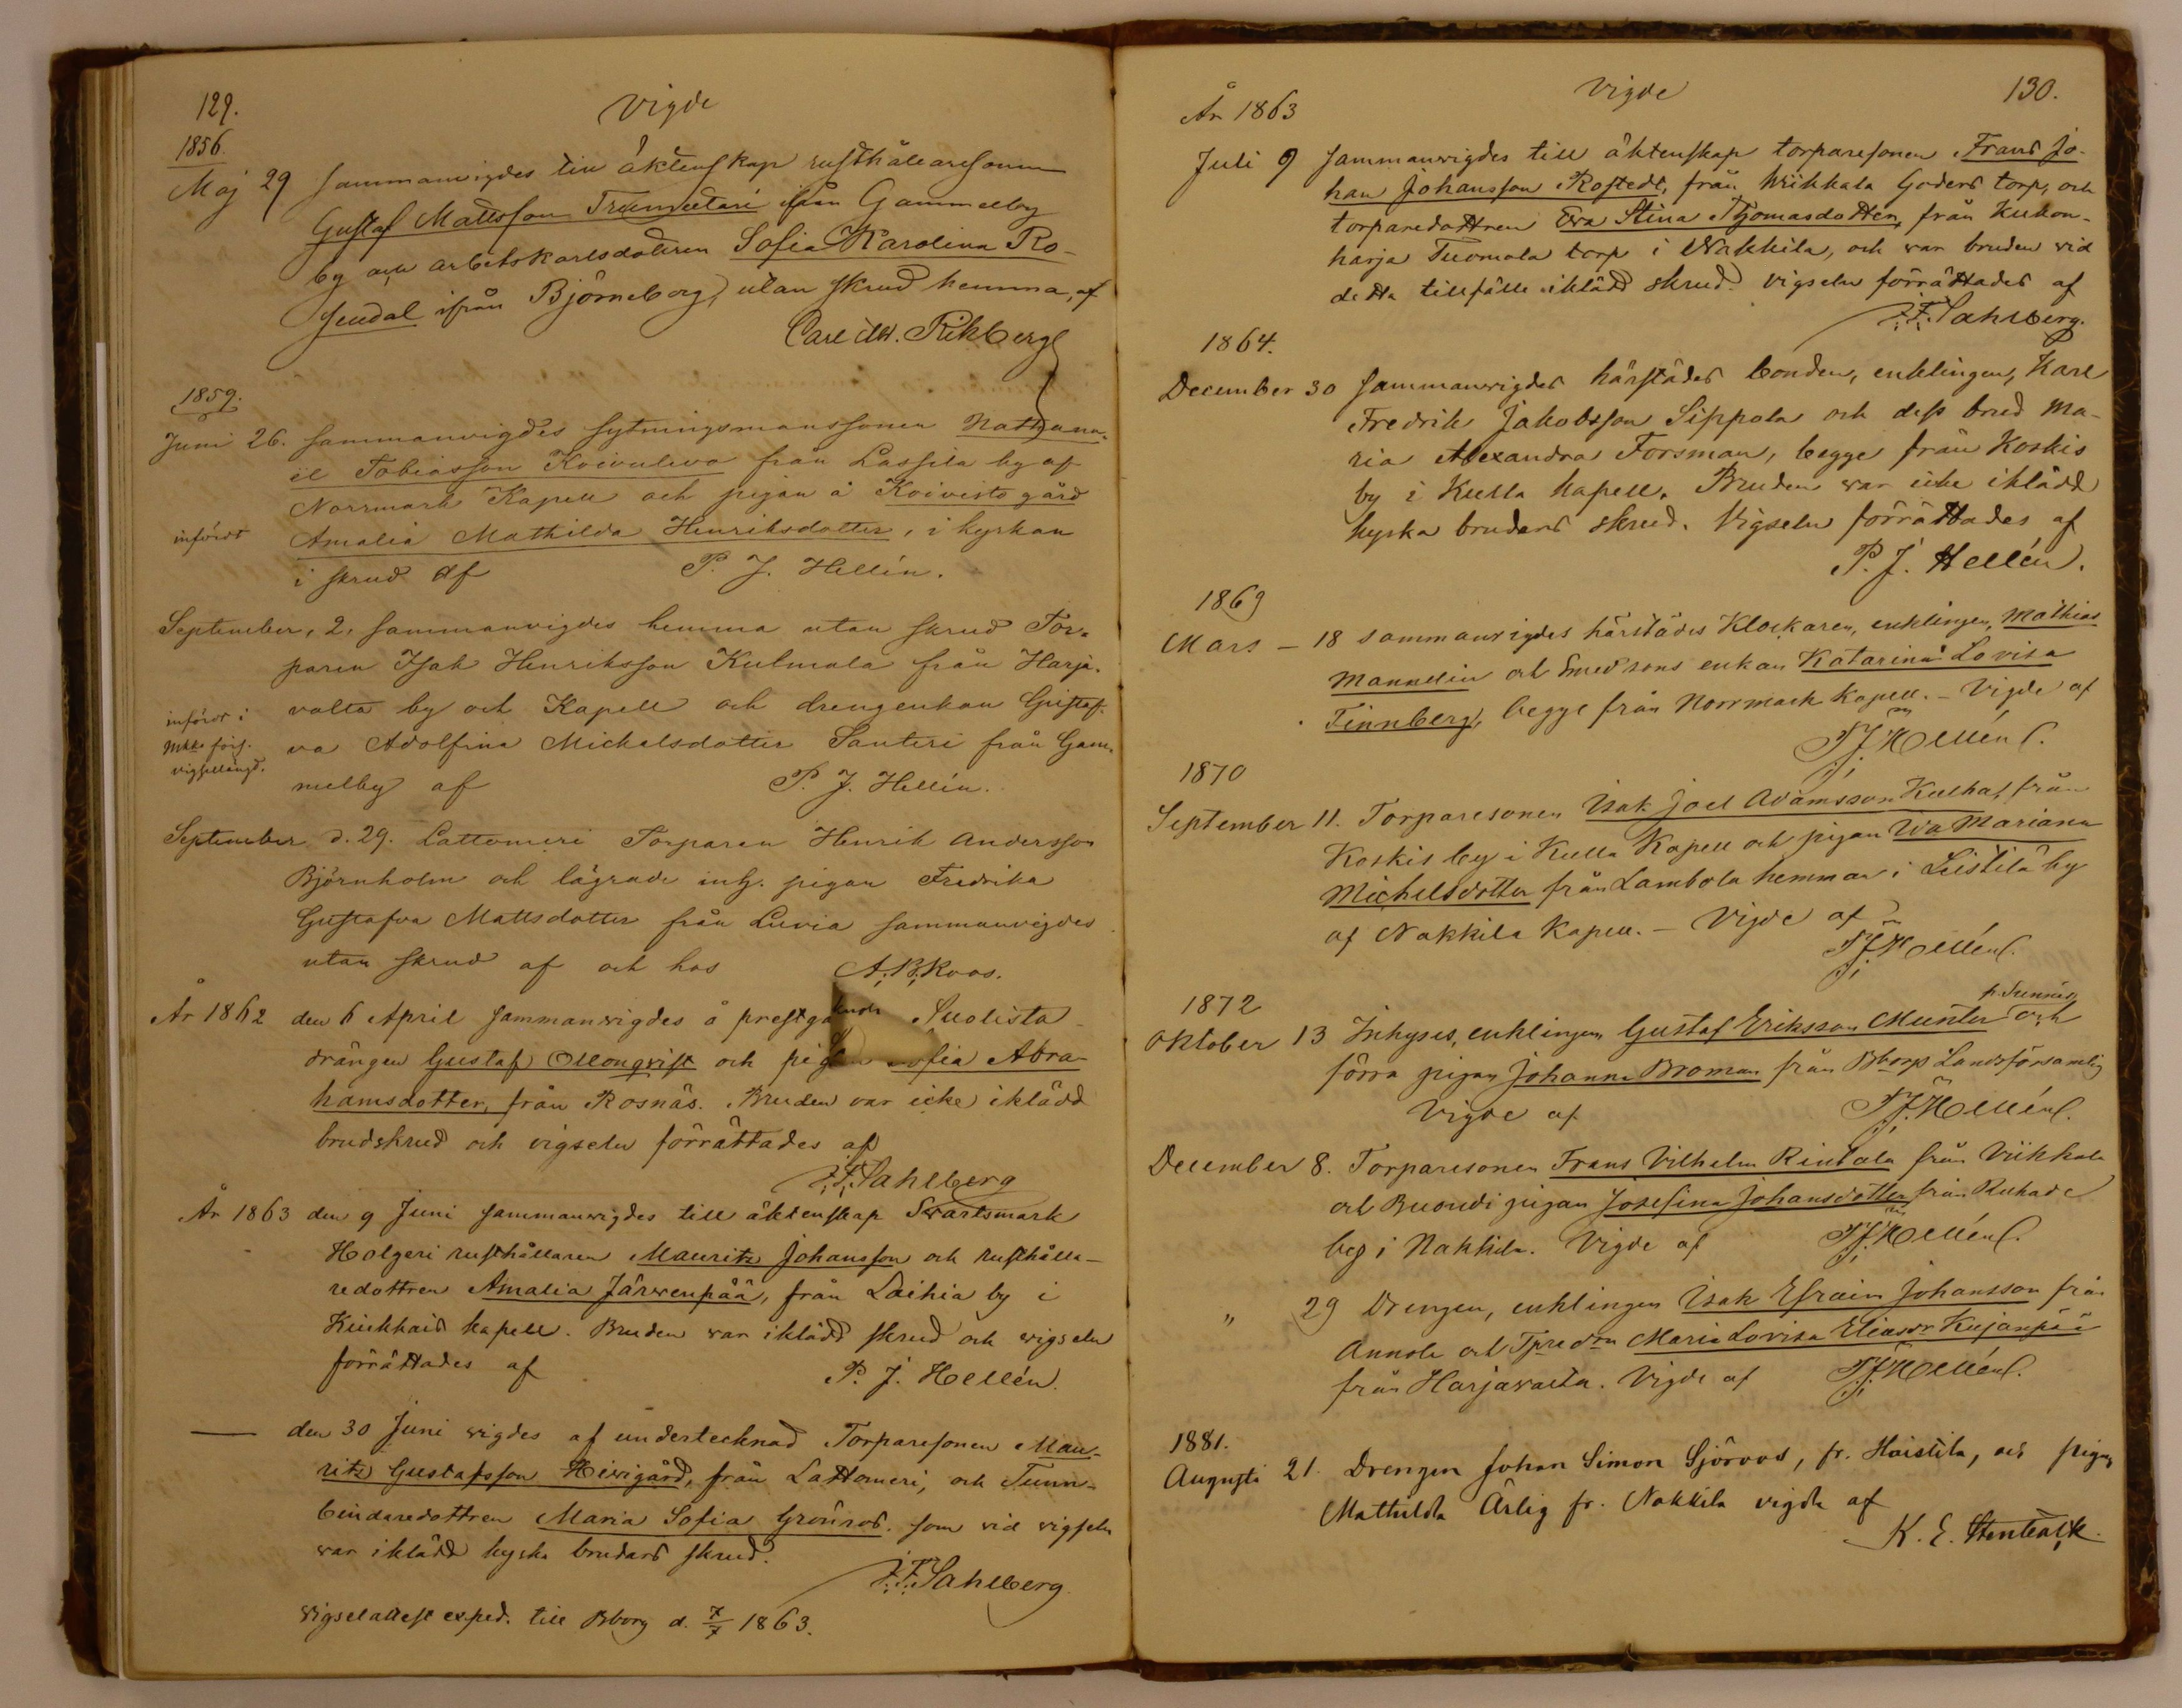 129.
Vigde
1856.
Maj 29 sammanvigdes till äktenskap rusthållaresonen
Gustaf Mattsson Trumetari ifrån Gammelby
by och arbetskarlsdottren Sofia Karolina Ro-
sendal ifrån Björneborg, utan skrud hemma, af
Carl Rikberg
1859.
Juni 26. sammanvigdes sytningsmanssonen Nathana-
el Tobiasson Koivulevo från Lassila by af
Norrmark Kapell och pigan å Koivisto gård
infördt Amalia Mathilda Henriksdotter, i kyrkan
i skrud af P. J. Hellén.
September, 2. sammanvigdes hemma utan skrud Tor-
paren Isak Henriksson Kulmala från Harja-
infördt i valta by och Kapell och drengenkan Gustaf-
förs. vigsellängd. va Adolfina Michalsdotter Santeri från Gam-
melby af P. J. Hellén.
September d. 29. Lattomeri Torparen Henrik Andersson
Björnholm och lägrade inh. pigan Fredrika
Gustafva Mattsdotter från Luvia sammanvigdes
utan skrud af och hos A. B. Roos.
År 1862 den 6 April sammanwigdes å prestgå Suolista
drängen Gustaf Ollonqvist och pigan Sofia Abra-
hamsdotter, från Rosnäs. Bruden var icke iklädd
brudskrud och vigseln förrättades af
F. Sahlberg
År 1863 den 9 Juni sammanwigdes till äktenskap Swartsmark
Holgeri rusthållaren Mauritz Johansson och rusthålla-
redottren Amalia Järwenpää, från Laihia by i
Kiukkais kapell. Bruden war iklädd skrud och wigseln
förrättades af P. J. Hellén.
— den 30 Juni wigdes af undertecknad Torparesonen Mau-
ritz Gustafsson Hewigård, från Lattomeri, och Tunn-
bindaredottren Maria Sofia Grönros. som vid vigseln
war iklädd kyska brudars skrud.
F. Sahlberg.
Vigselattest exped. till Bborg d. 7/7 1863.
Vigde
130.
År 1863
Juli 9 sammanwigdes till äktenskap torparesonen Frans Jo-
han Johansson Rostedt, från Wiikkala Goders torp, och
torparedottren Eva Stina Thomasdotter, från Kukon-
harja Tuomola torp i Nakkila, och war bruden vid
detta tillfälle iklädd skrud. Vigseln förrättades af
F. Sahlberg.
1864.
December 30 sammanwigdes härstädes bonden, enklingen, Karl
Fredrik Jakobsson Sippola och dess brud Ma-
ria Alexandra Forsman, begge från Koskis
by i Kulla Kapell. Bruden war icke iklädd
kyska brudars skrud. Vigseln förrättades af
P. J. Hellén.
1869
Mars – 18 sammanvigdes härstädes Klockaren, enklingen, Mathias
Mannelin och Smedsons enkan Katarina Lovisa
Finnberg, begge från Norrmark Kapell. – Vigde af
P J Hellén.
1870
September 11. Torparesonen Isak Joel Adamsson Kulhat från
Koskis by i Kulla Kapell och pigan Wa Mariana
Michelsdotter från Lambola hemman i Leistilä by
af Nakkila Kapell. – Vigde af
P J Hellén.
1872
Oktober 13 Inhyses, enklingen Gustaf Eriksson Munter p. Sunnäs och
förra pigan Johanna Broman från Bborgs Landsförsamlig
Vigde af P J Hellén.
December 8. Torparesonen Frans Vilhelm Rintala från Viikkala
och pigan Josefina Johansdotter från Ruhade
by i Nakkila. Vigde af P J Hellén.
„ 29 Drengen, enklingen Isak Efraim Johansson från
Annola och Tpredrn Maria Lovisa Eliasdr Kujanpää
från Harjavalta. Vigde af P J Hellén.
1881.
Augusti 21. Drengen Johan Simon Sjöroos, fr. Haistila, och pigan
Mathilda Ärlig fr. Nakkila vigde af
K. E. Stenbäck.